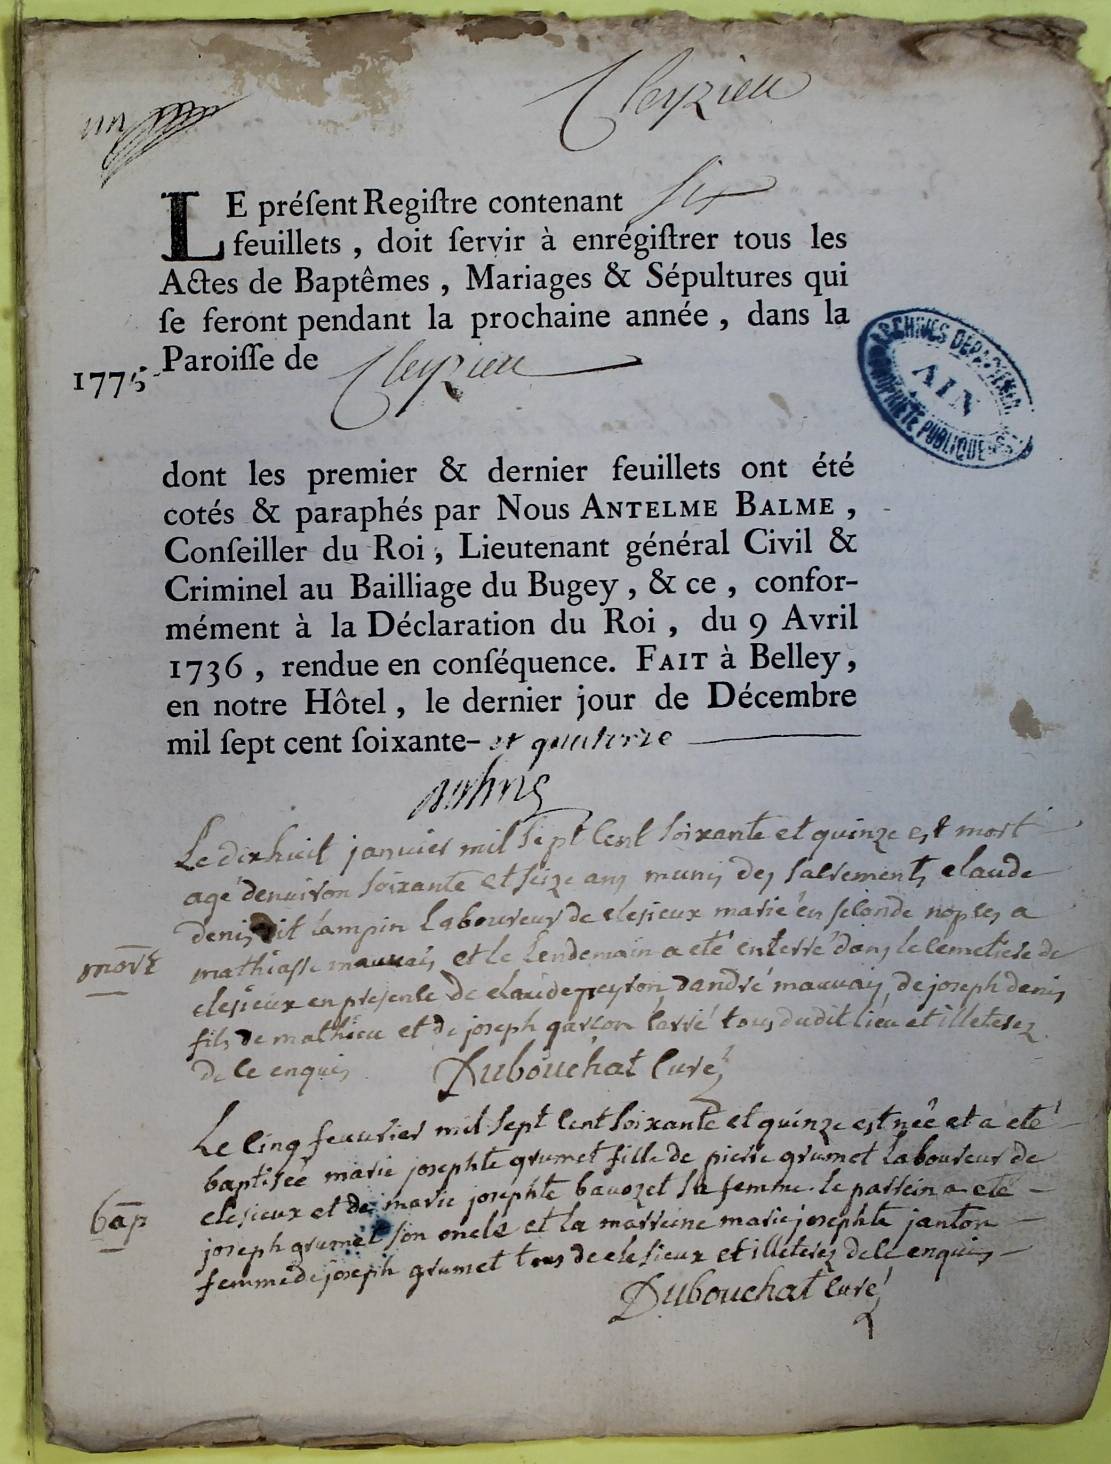 un
Cleyzieu
LE préſent Regiſtre contenant six
feuillets, doit ſervir à enrégiſtrer tous les
Actes de Baptêmes, Mariages & Sépultures qui
ſe feront pendant la prochaine année, dans la
Paroiſſe de Cleyzieu
1775
ARCHIVES DÉPARTEMEN
AIN
PROPRIÉTÉ PUBLIQUE
dont les premier & dernier feuillets ont été
cotés & paraphés par Nous ANTELME BALME,
Conſeiller du Roi, Lieutenant général Civil &
Criminel au Bailliage du Bugey, & ce, confor-
mément à la Déclaration du Roi, du 9 Avril
1736, rendue en conſéquence. FAIT à Belley,
en notre Hôtel, le dernier jour de Décembre
mil ſept cent ſoixante- et quatorze
Le dixhuit janvier mil sept cent soixante et quinze est mort
agé denviron soixante et seize ans munis des sacrements claude
denis dit lampin laboureur de clesieux marié en seconde nopces a
mort
mathiasse mauvais et le lendemain a eté enterré dans le cemetiere de
clesieux en presence de claude peyron, dandré mauvais, de joseph denis
fils de mathieu et de joseph garçon carré tous dudit lieu et illeterez
de ce enquis Dubouchat Curé
Le cinq feuvrier mil sept cent soixante et quinze est née et a eté
baptisée marie josephte grumet fille de pierre grumet laboureur de
clesieux et de marie josephte bavozet sa femme. le parrein a eté
bap
joseph grumet son oncle et la marreine marie josephte janton
femme de joseph grumet tous de clesieux et illeterez de ce enquis
Dubouchat Curé